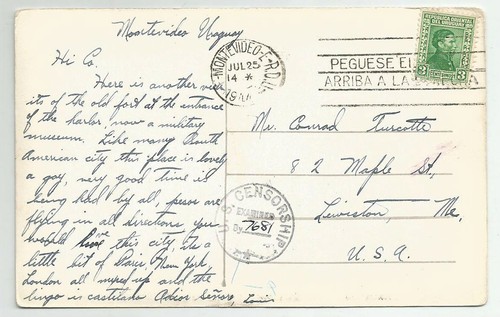 Montevideo Uruguay
Hi Co.
Here is another view
its of the old fort at the entrance
of the harbor, now a military
museum. Like many South
American city this place is lovely
a gay, very good time is
being had by all, pesos are
flying in all directions you
would love this city, its a
little bit of Paris, New York,
London all mixed up and the
lingo is castilano Adios Señore, Louis
MONTEVIDEO
JUL 25
14
PEGUESE EL
ARRIBA A LA
REPUBLICA ORIENTAL
DEL URUGUAY
2 3
Mr. Conrad Turcotte
82 Maple St,
Lewiston, Me,
U.S.A.
CENSORSHIP
EXAMINED
By 7681